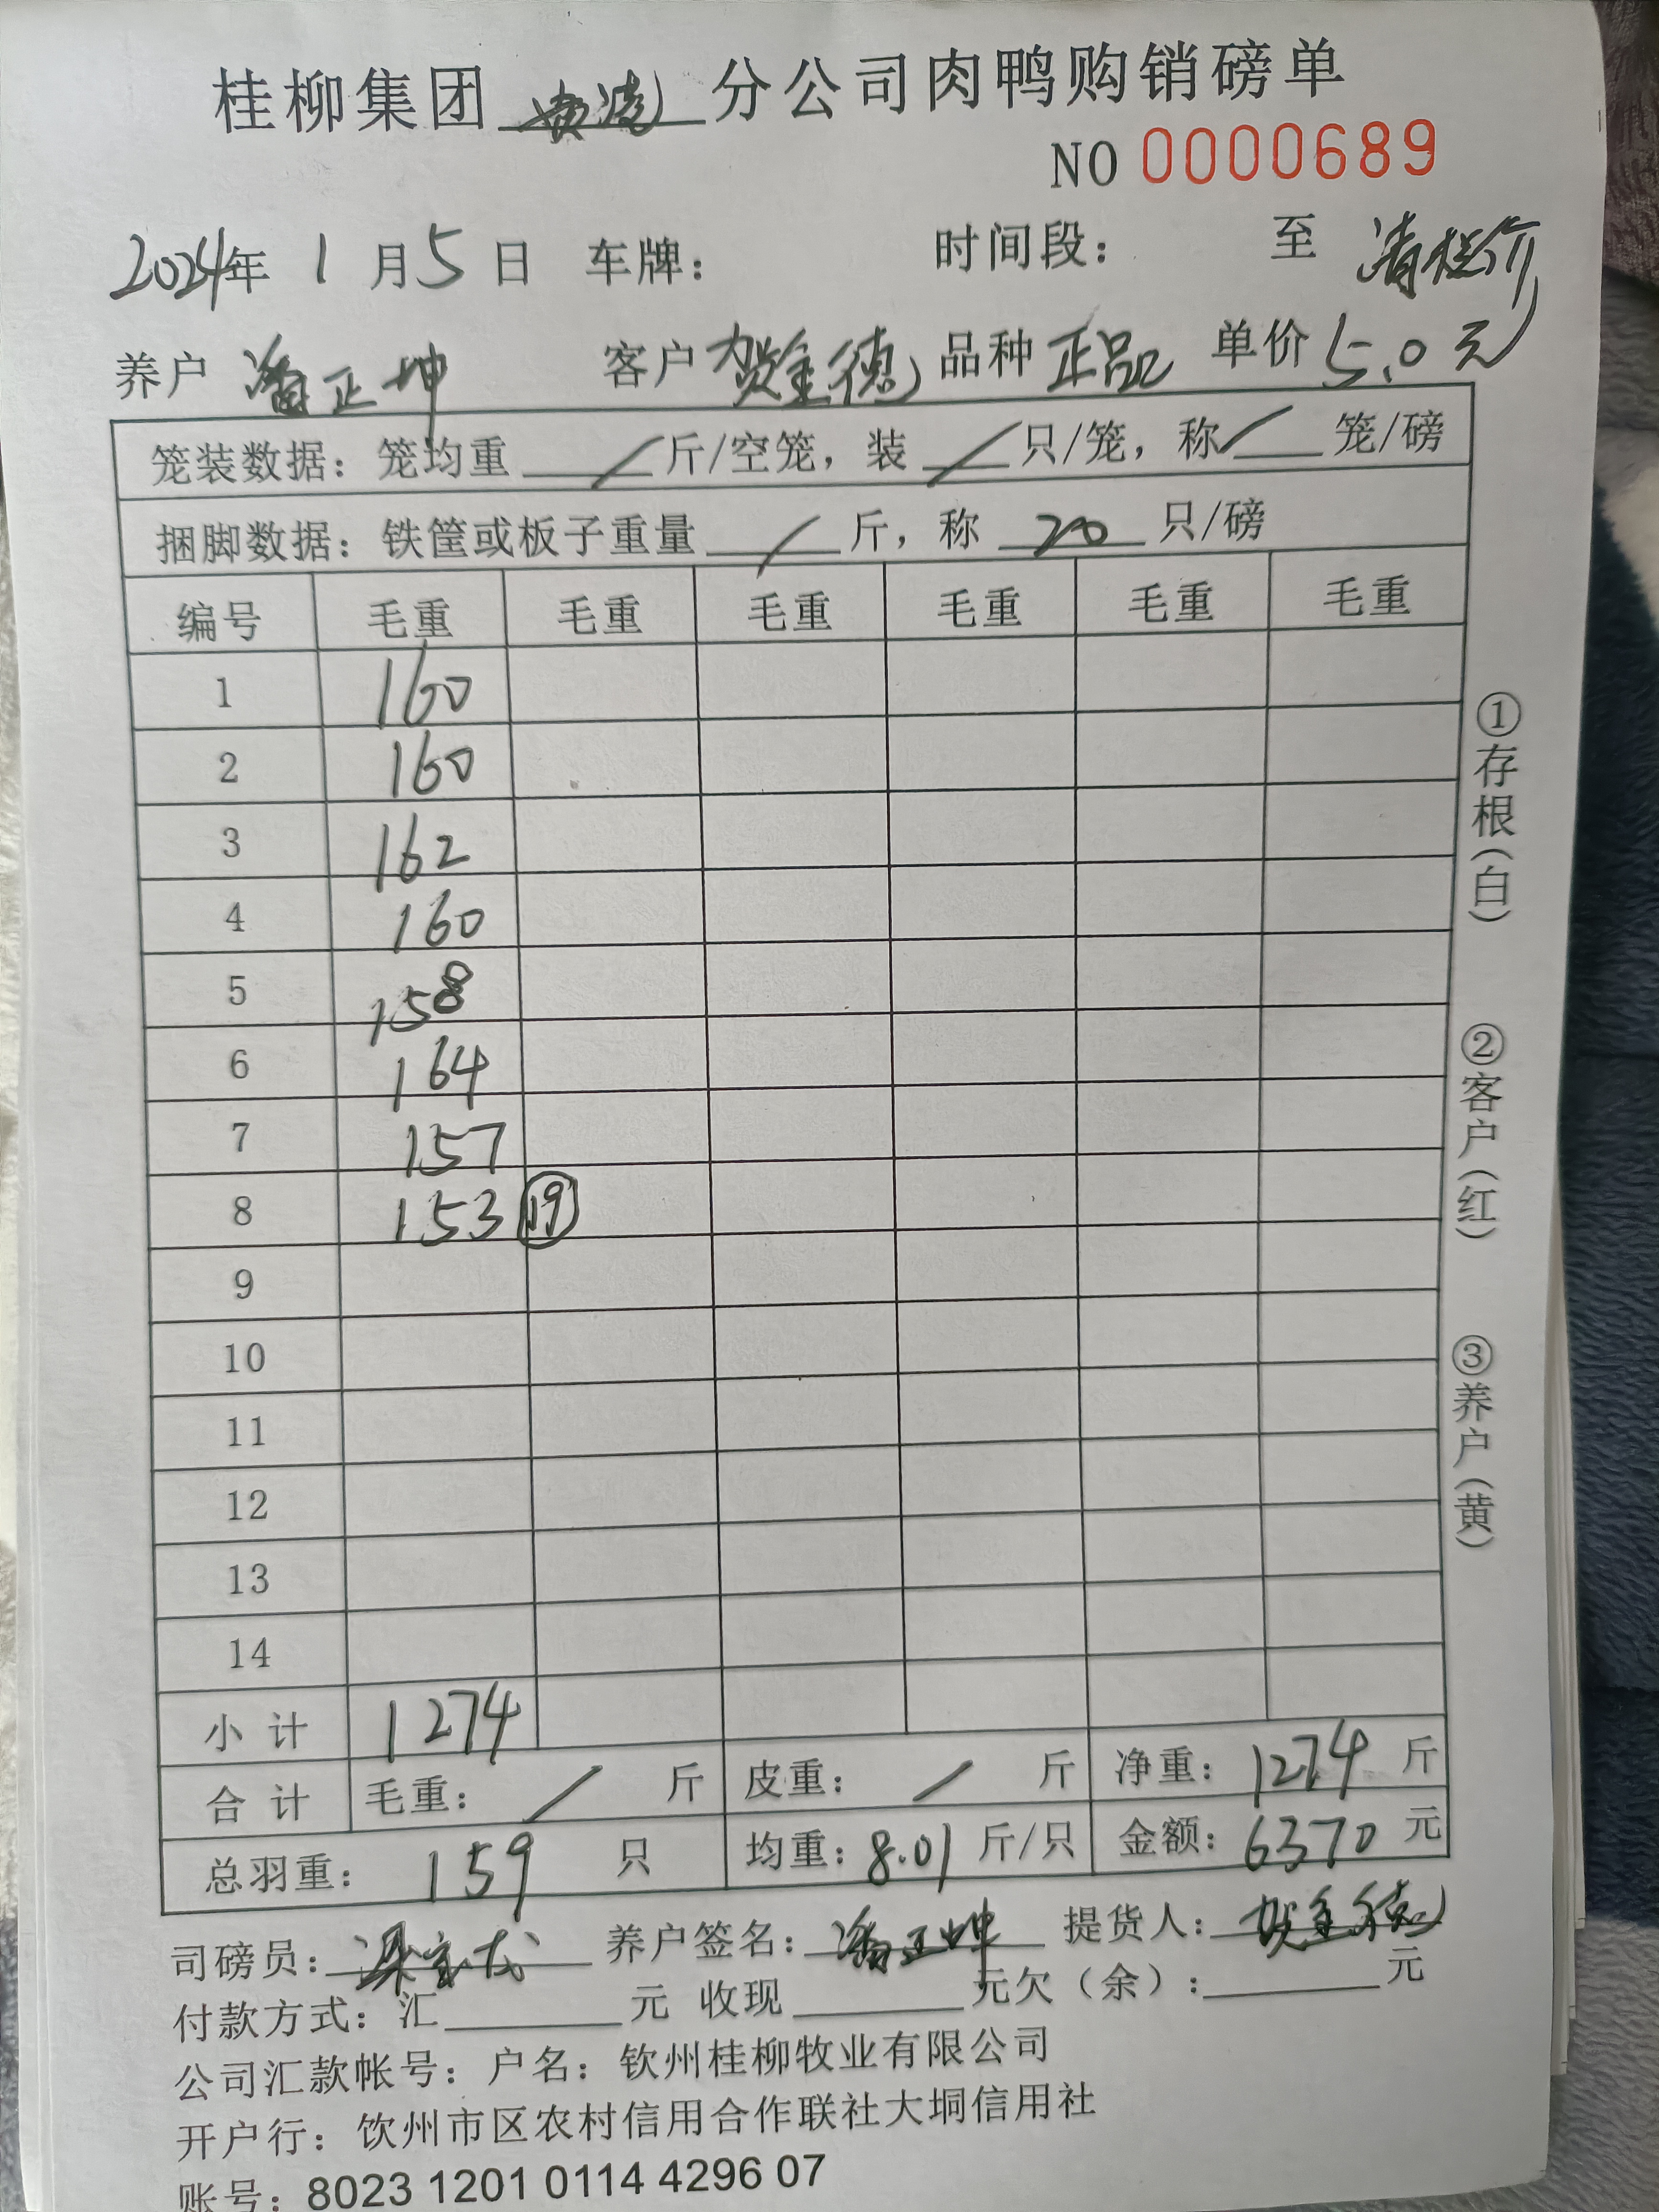 桂柳集团 分公司肉鸭购销磅单
NO 0000689
2024年 1 月 5 日 车牌: 时间段: 至 清栏价
养户 潘正坤 客户 贺金德 品种 正品 单价 5.0元
笼装数据: 笼均重 / 斤/空笼, 装 / 只/笼, 称 / 笼/磅
捆脚数据: 铁筐或板子重量 / 斤, 称 20 只/磅
编号 毛重 毛重 毛重 毛重 毛重 毛重
1 160
2 160
3 162
4 160
5 158
6 164
7 157
8 153 19
9
10
11
12
13
14
小计 1274
合计 毛重: / 斤 皮重: / 斤 净重: 1274 斤
总羽重: 159 只 均重: 8.01 斤/只 金额: 6370 元
司磅员: 养户签名: 潘正坤 提货人: 贺金德
付款方式: 汇 元 收现 元欠(余): 元
公司汇款帐号: 户名: 钦州桂柳牧业有限公司
开户行: 饮州市区农村信用合作联社大垌信用社
账号: 8023 1201 0114 4296 07
①存根(白)
②客户(红)
③养户(黄)